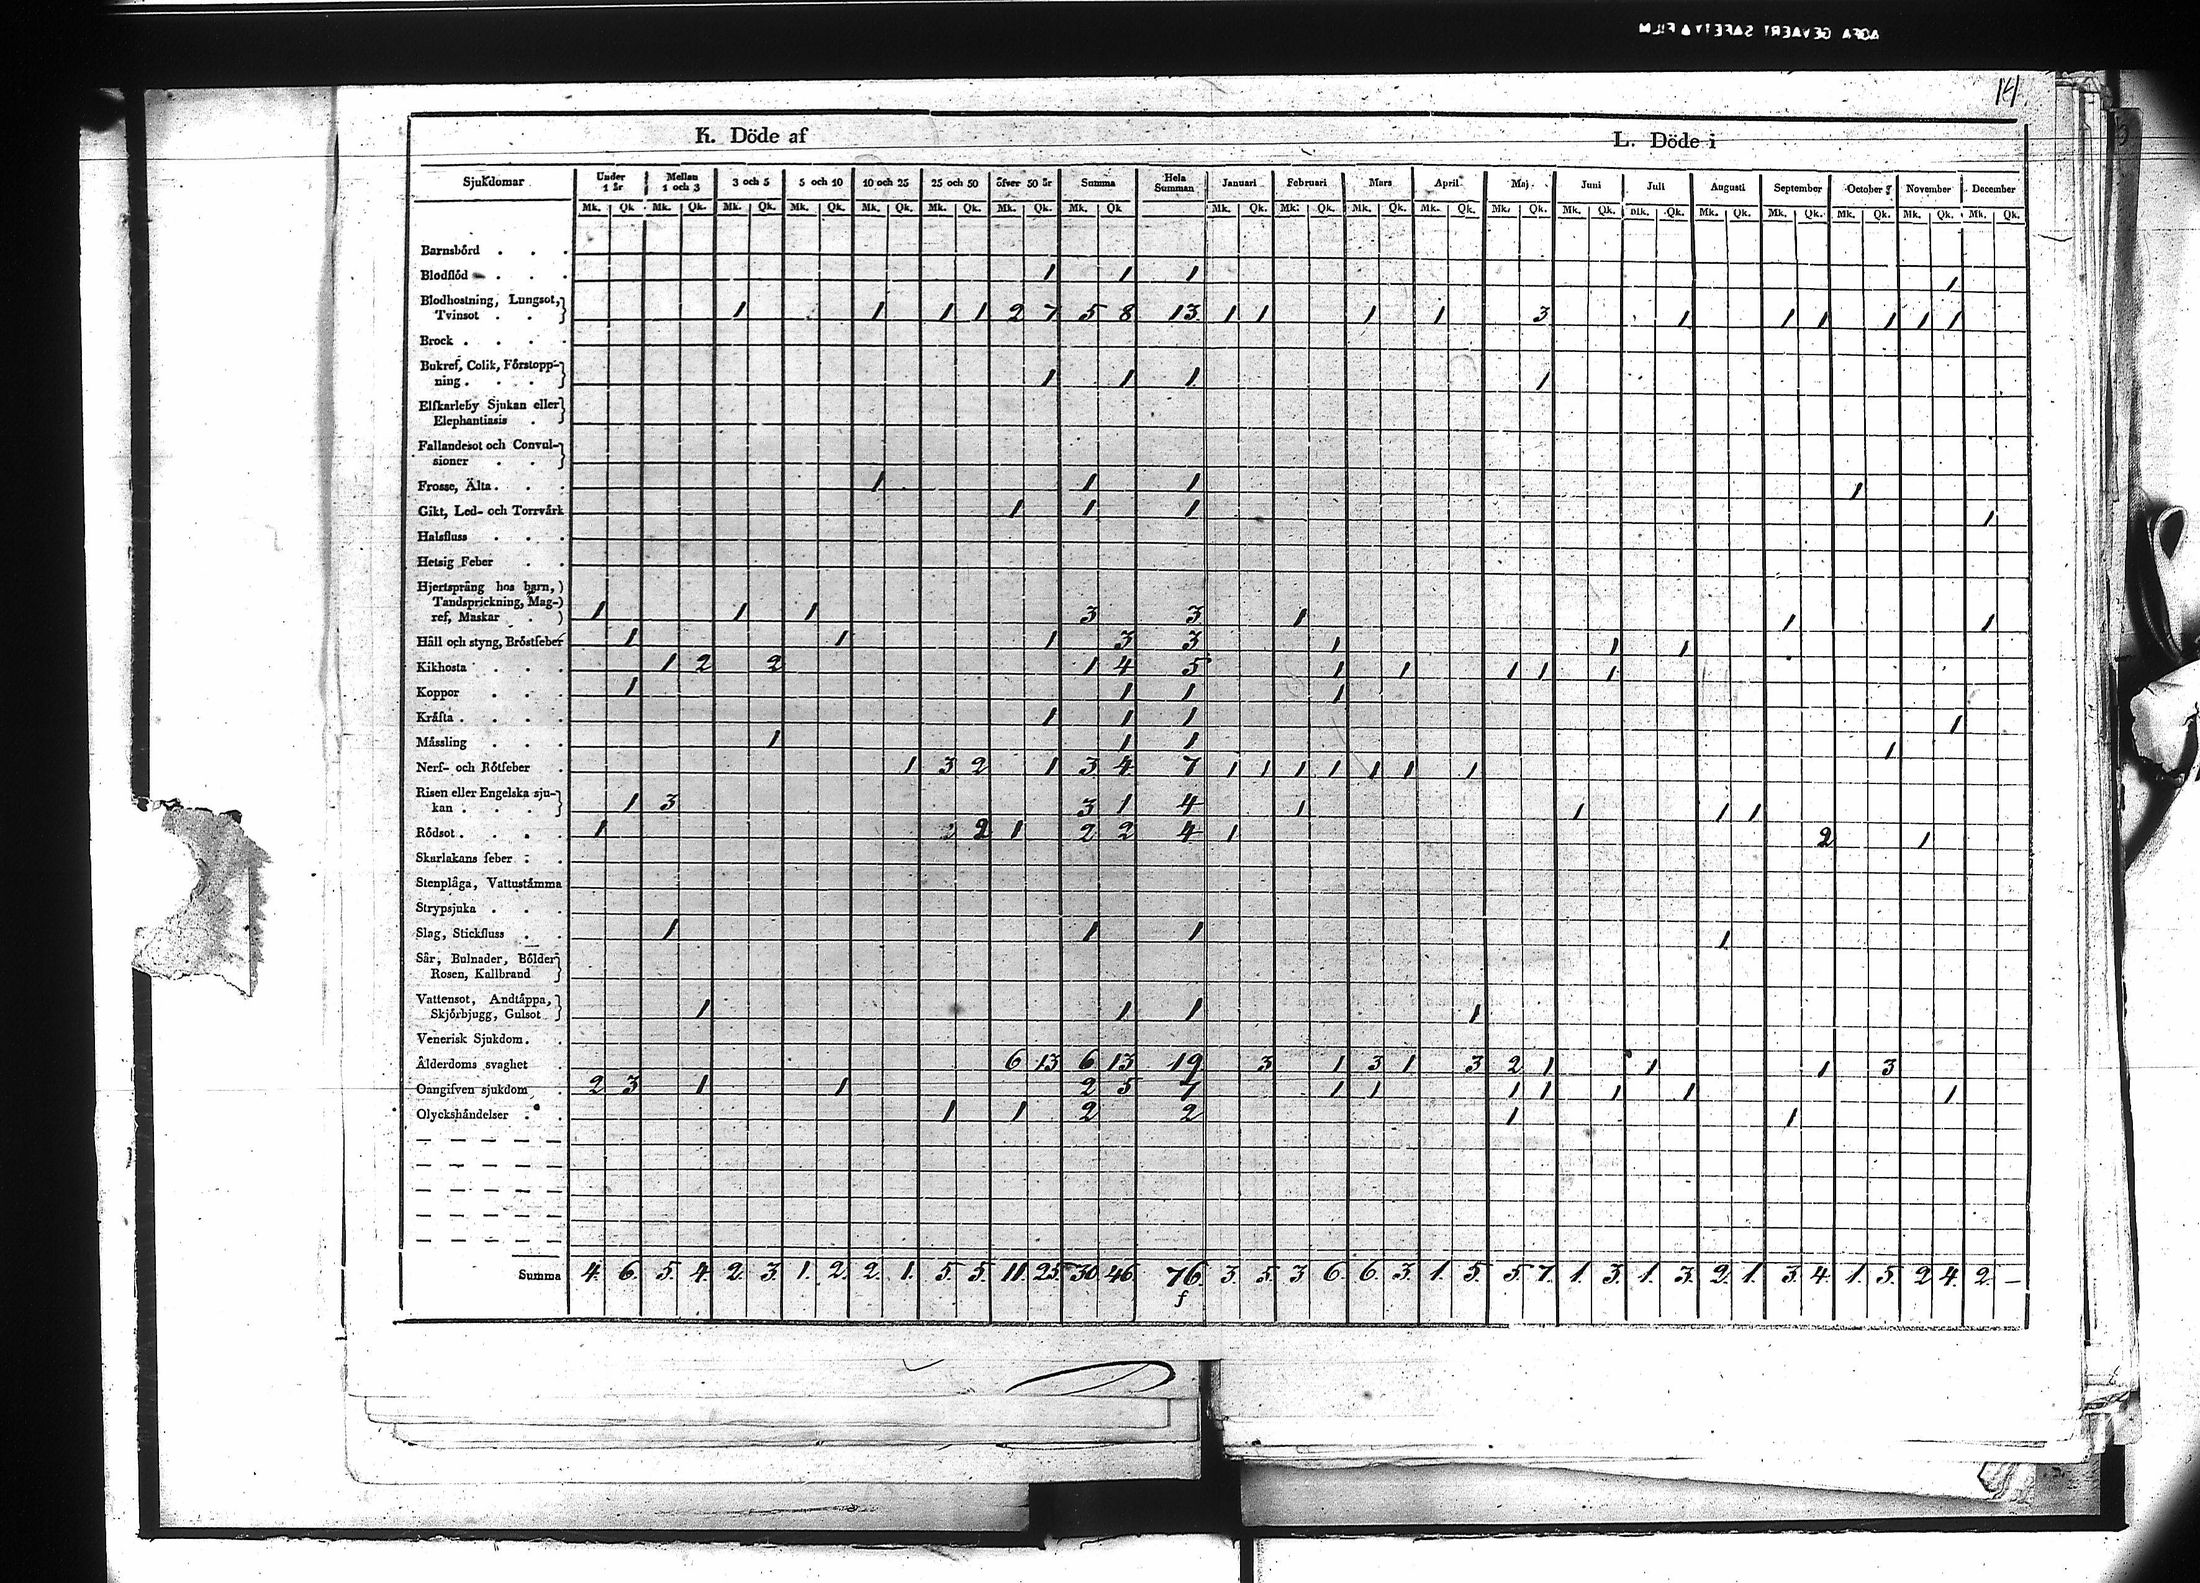 AGFA GEVAERT SAFETY FILM
14.
K. Döde af L. Döde i
Sjukdomar Under 1 år Mellan 1 och 3 3 och 5 5 och 10 10 och 25 25 och 50 öfver 50 år Summa Hela Summan Januari Februari Mars April Maj Juni Juli Augusti September October November December
Mk. Qk. Mk. Qk. Mk. Qk. Mk. Qk. Mk. Qk. Mk. Qk. Mk. Qk. Mk. Qk. Mk. Qk. Mk. Qk. Mk. Qk. Mk. Qk. Mk. Qk. Mk. Qk. Mk. Qk. Mk. Qk. Mk. Qk. Mk. Qk. Mk. Qk. Mk. Qk.
Barnsbörd . . .
Blodflöd . . . 1 1 1 1
Blodhostning, Lungsot,
Tvinsot . . 1 1 1 1 2 7 5 8 13 1 1 1 1 3 1 1 1 1 1 1
Brock . . . .
Bukref, Colik, Förstopp-
ning . . . . 1 1 1 1
Elfkarleby Sjukan eller
Elephantiasis .
Fallandesot och Convul-
sioner . .
Frosse, Älta . . . 1 1 1 1
Gikt, Led- och Torrvärk 1 1 1 1
Halsfluss . . .
Hetsig Feber . .
Hjertspräng hos barn,
Tandsprickning, Mag-
ref, Maskar . 1 1 1 3 3 1 1 1
Håll och styng, Bröstfeber 1 1 1 3 3 1 1 1
Kikhosta . . . 1 2 2 1 4 5 1 1 1 1 1
Koppor . . . 1 1 1 1
Kräfta . . . . 1 1 1 1
Mässling . . . 1 1 1 1
Nerf- och Rötfeber . 1 3 2 1 3 4 7 1 1 1 1 1 1 1
Risen eller Engelska sju-
kan . . . . 1 3 3 1 4 1 1 1 1
Rödsot . . . . 1 2 1 2 2 4 1 2 1
Skarlakans feber . .
Stenplåga, Vattustämma
Strypsjuka . . .
Slag, Stickfluss . . 1 1 1 1
Sår, Bulnader, Bölder
Rosen, Kallbrand
Vattensot, Andtäppa,
Skjörbjugg, Gulsot 1 1 1 1
Venerisk Sjukdom . .
Ålderdoms svaghet . 6 13 6 13 19 3 1 3 1 3 2 1 1 1 3
Oangifven sjukdom . 2 3 1 1 2 5 7 1 1 1 1 1 1 1
Olyckshändelser . . 1 1 2 2 1 1
Summa 4. 6. 5. 4. 2. 3. 1. 2. 2. 1. 5. 5. 11. 25. 30 46 76 3. 5. 3 6. 6. 3. 1. 5. 5. 7. 1. 3. 1. 3. 2. 1. 3. 4. 1. 5. 2 4. 2 –